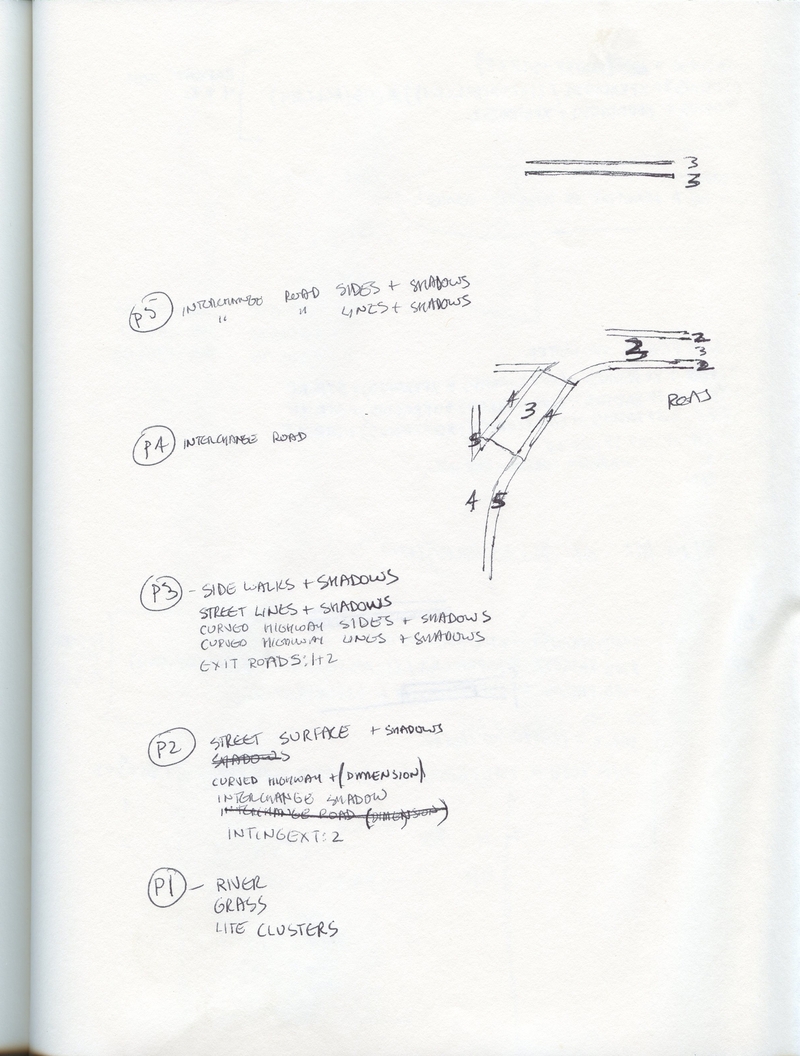 3
3
P5 INTERCHANGE ROAD SIDES + SHADOWS
" " LINES + SHADOWS
2
2 3
2
ROAD
4
3 4
5
4 5
P4 INTERCHANGE ROAD
P3 - SIDE WALKS + SHADOWS
STREET LINES + SHADOWS
CURVED HIGHWAY SIDES + SHADOWS
CURVED HIGHWAY LINES + SHADOWS
EXIT ROADS:1+2
P2 STREET SURFACE + SHADOWS
SHADOWS
CURVED HIGHWAY + (DIMENSION)
INTERCHANGE SHADOW
INTERCHANGE ROAD (DIMENSION)
INTINGEXT: 2
P1 - RIVER
GRASS
LITE CLUSTERS